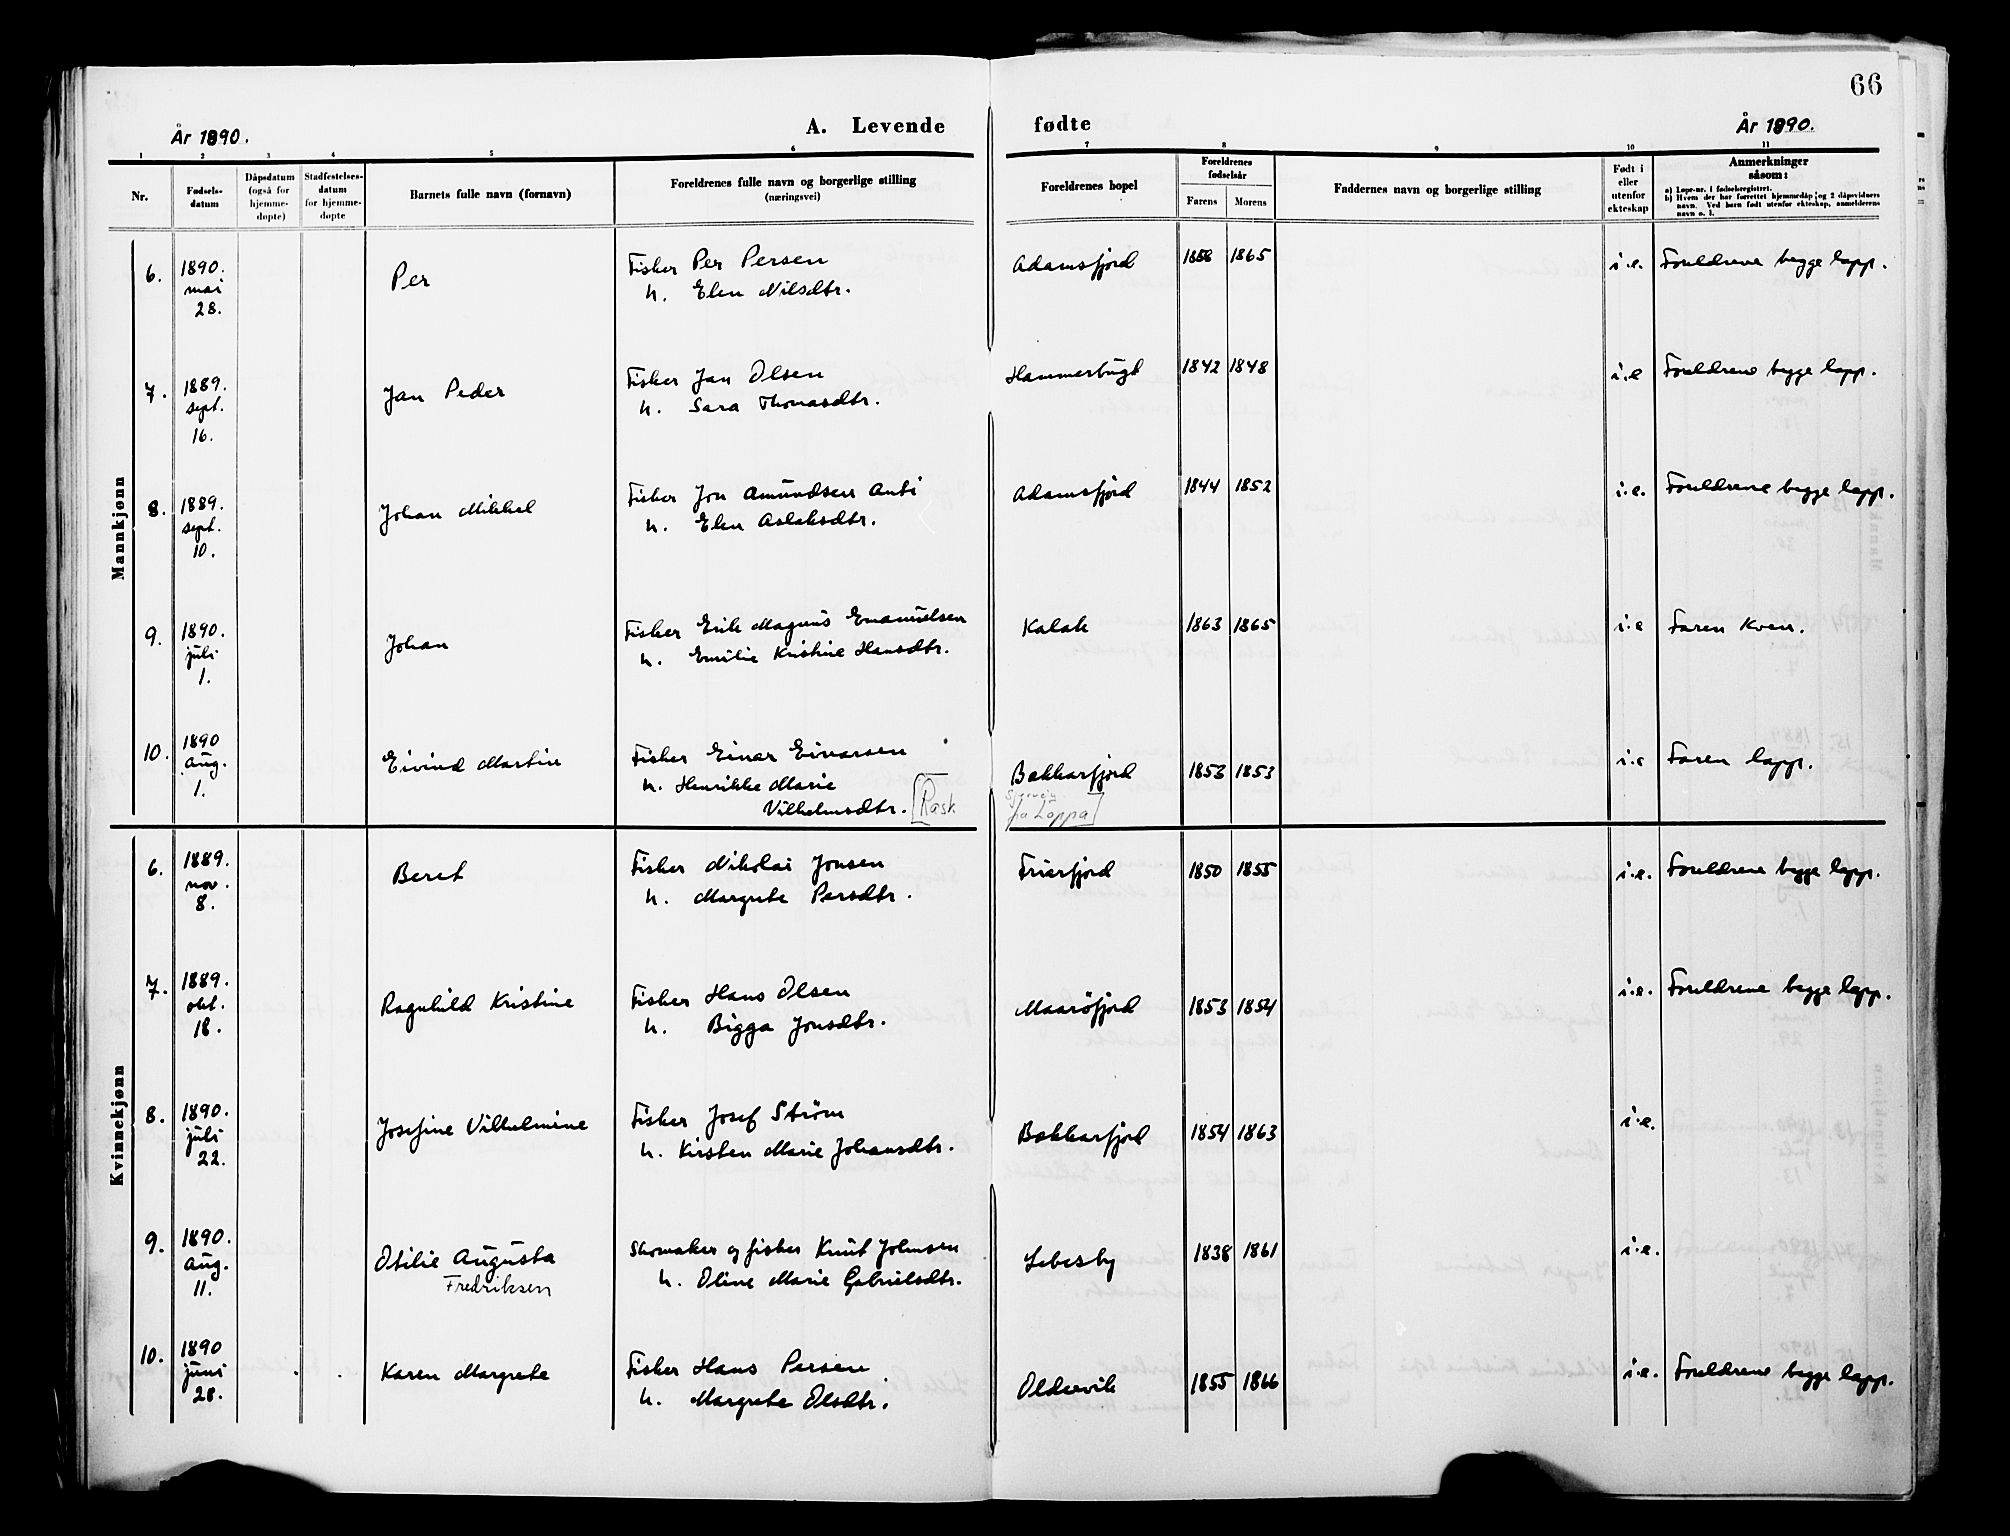 66
År 1890.
A. Levende fødte
År 1890.
1 2 3 4 5 6 7 8 9 10 11
Nr.
Fødsels-
datum
Dåpsdatum
(også for
hjemme-
døpte)
Stadfestelses-
datum
for hjemme-
døpte
Barnets fulle navn (fornavn)
Foreldrenes fulle navn og borgerlige stilling
(næringsvei)
Foreldrenes bopel
Foreldrenes
fødselsår
Farens Morens
Faddernes navn og borgerlige stilling
Født i
eller
utenfor
ekteskap
Anmerkninger
såsom:
a) Løpe-nr. i fødselsregistret.
b) Hvem der har forrettet hjemmedåp og 2 dåpsvidners
navn. Ved barn født utenfor ekteskap, anmelderens
navn o. l.
Mannkjønn
6. 1890. mai 28. Per Fisker Per Persen Adamsfjord 1865 i.e. Foreldrene begge lapp.
h. Elen Nilsdtr.
7. 1889. sept. 16. Jan Peder Fisker Jan Olsen Hammerbugt 1842 1848 i.e Foreldrene begge lapp.
h. Sara Thomasdtr.
8. 1889. sept. 10. Johan Mikkel Fisker Jon Amundsen Anti Adamsfjord 1844 1852 i.e. Foreldrene begge lapp.
h. Elen Aslaksdtr.
9. 1890. juli 1. Johan Fisker Erik Magnus Emanuelsen Kalak 1863 1865 i.e Faren Kven.
h. Emilie Kristine Hansdtr.
10. 1890 aug. 1. Eivind Martin Fisker Einar Eivarsen Bekkarfjord 1853 1853 i.e Faren lapp.
h. Henrikke Marie
Vilhelmsdtr. [Rask
fra Loppa]
Kvinnekjønn
6. 1889. nov. 8. Beret Fisker Nikolai Jonsen Friarfjord 1850 1855 i.e. Foreldrene begge lapp.
h. Margrete Persdtr.
7. 1889. okt. 18. Ragnhild Kristine Fisker Hans Olsen Maarøfjord 1853 1854 i.e. Foreldrene begge lapp.
h. Bigga Jonsdtr.
8. 1890. juli 22. Josefine Vilhelmine Fisker Josef Strøm Bekkarfjord 1854 1863 i.e.
h. Kirsten Marie Johansdtr.
9. 1890. aug. 11. Otilie Augusta Skomaker og fisker Knut Johnsen Lebesby 1838 1861 i.e.
Fredriksen h. Oline Marie Gabrielsdtr.
10. 1890 juni 28. Karen Margrete Fisker Hans Persen Oldervik 1855 1866 i.e. Foreldrene begge lapp.
h. Margrete Olsdtr.